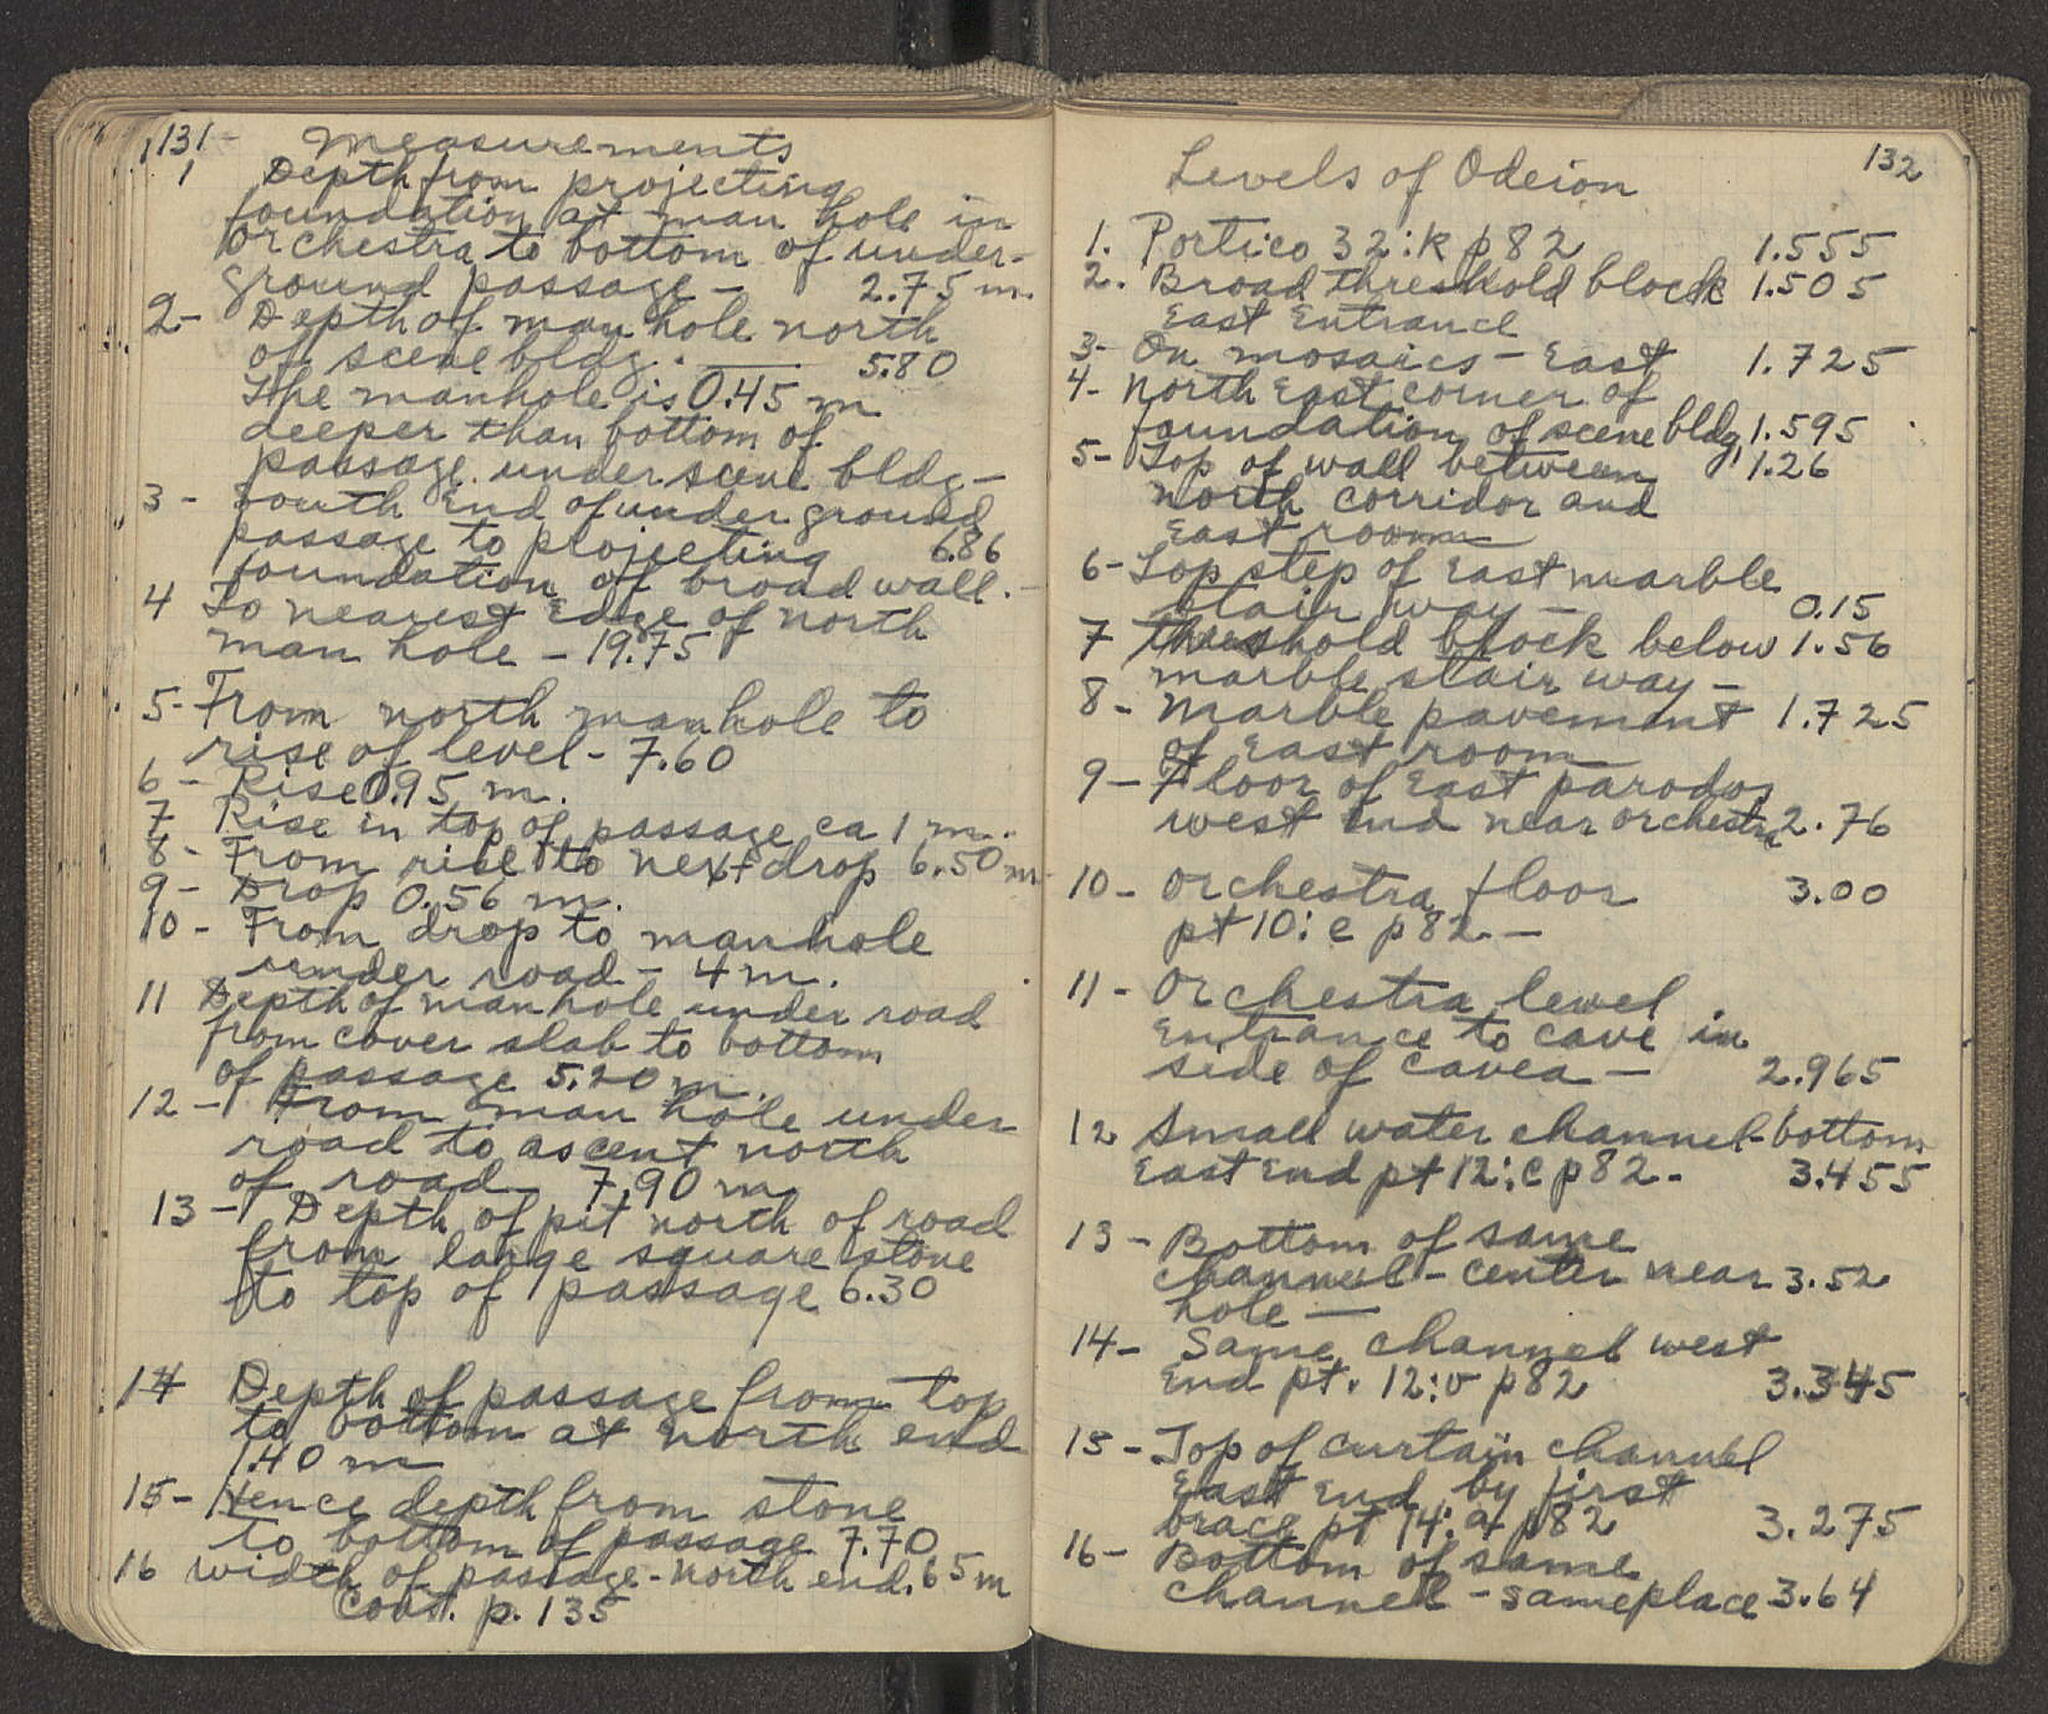 131-
Measurements
1 Depth from projecting
foundation at man hole in
orchestra to bottom of under-
ground passage - 2.75 m.
2- Depth of man hole north
of scene bldg. — 5.80
The manhole is 0.45 m
deeper than bottom of
passage under scene bldg -
3- South End of under ground
passage to projecting 6.86
foundation of broad wall. -
4 To nearest Edge of north
man hole - 19.75
5- From north manhole to
rise of level - 7.60
6 - Rise 0.95 m.
7 Rise in top of passage ca 1 m.
8- From rise to next drop 6.50 m
9- Drop 0.56 m.
10- From drop to manhole
under road - 4 m.
11 Depth of manhole under road
from cover slab to bottom
of passage 5.20 m.
12- From man hole under
road to ascent north
of road 7.90 m
13- Depth of pit north of road
from large square stone
to top of passage 6.30
14 Depth of passage from top
to bottom at north end
1.40 m
15- Hence depth from stone
to bottom of passage 7.70
16 width of passage - north end .65 m
Cont. p. 135
132
Levels of Odeion
1. Portico 32:k p 82 1.555
2. Broad threshold block 1.505
East Entrance
3- On mosaics - East 1.725
4- North East corner of
foundation of scene bldg, 1.595
5- Top of wall between 1.26
north corridor and
East room
6- Top step of East marble
stair way - 0.15
7 threshold block below 1.56
marble stair way -
8- Marble pavement 1.725
of East room
9- Floor of East parodos
west End near orchestra 2.76
10- Orchestra floor 3.00
pt 10:e p 82. -
11- Orchestra level
Entrance to cave in
side of cavea - 2.965
12 Small water channel - bottom
East End pt 12:c p 82. 3.455
13- Bottom of same
channel - center near 3.52
hole —
14- Same channel west
End pt. 12:v p 82 3.345
15- Top of curtain channel
East End by first
brace pt 14:a p 82 3.275
16- Bottom of same
channel - same place 3.64